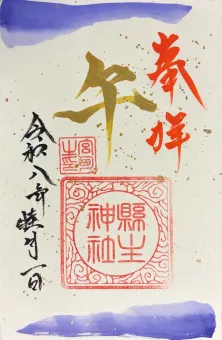 奉拝
午
縣主
神社
令和八年睦月一日